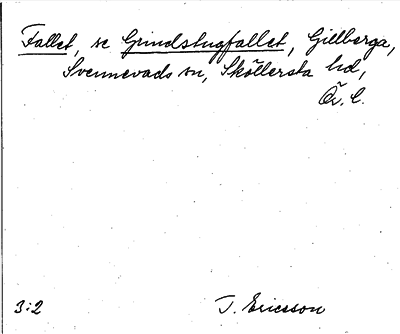 Fallet, se Grindstugfallet, Gillberga,
Svennevads sn, Sköllersta hd,
Ör. l.
3:2
J. Ericsson